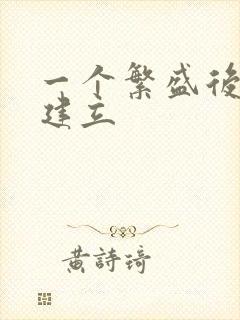 一个繁盛後
建立
黄詩琦